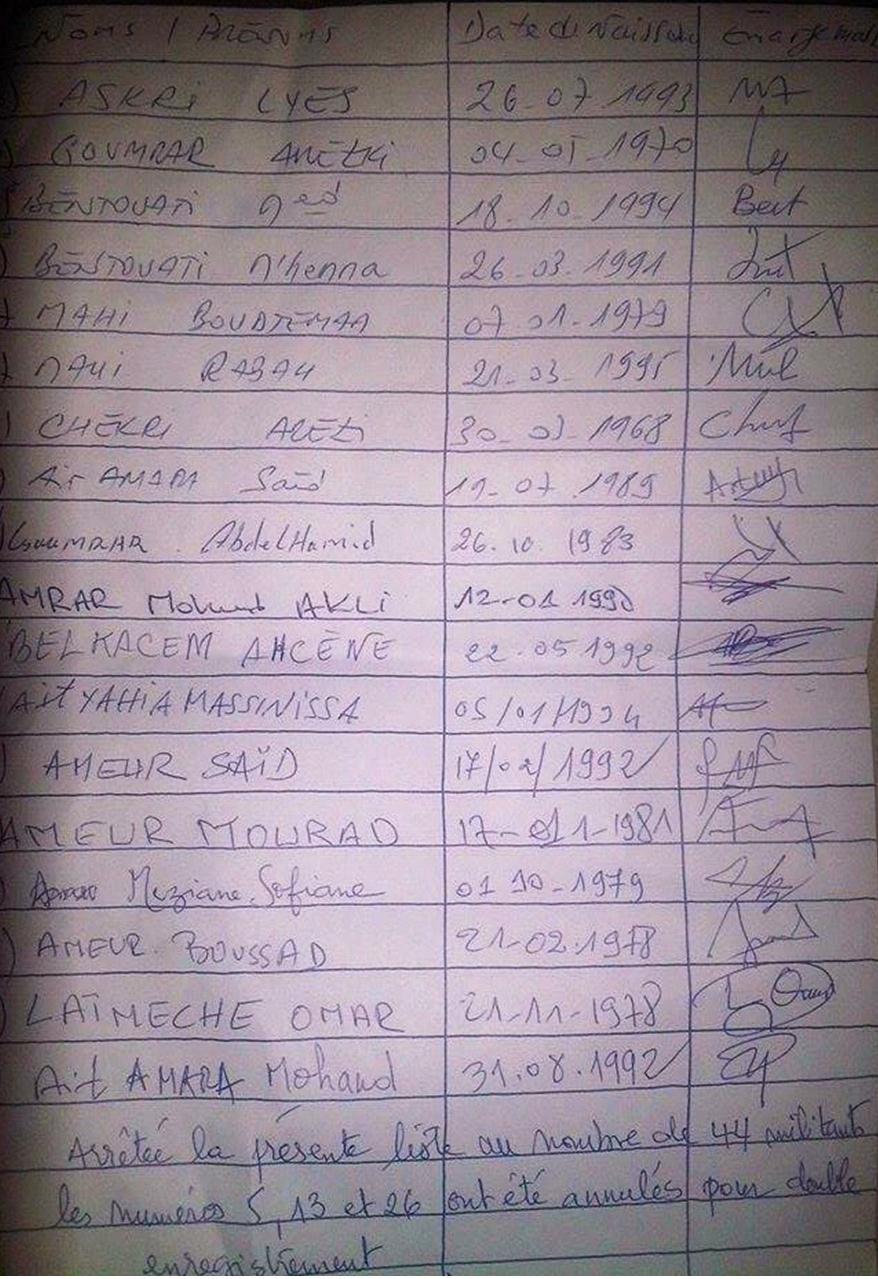 Noms / Prénoms Date de Naissance Emargement
ASKRi LYES 26-07-1993
GOUMRAR AREZKI 04-05-1970
BENTOUATI Med 18-10-1994 Bent
BENTOUATI M'henna 26-03-1991
MAHI BOUDJEMAA 07-01-1979
MAHI RABAH 21-03-1995
CHEKRI AREZKi 30-03-1968
Ait AMARA Saïd 19-07-1989
GOUMRAR AbdelHamid 26.10.1983
AMRAR Mohand AKLi 12-01 1990
BELKACEM AHCÈNE 22.05 1992
Ait YAHIA MASSINISSA 05/01/1994
AMEUR SAÏD 17/02/1992
AMEUR MOURAD 17-01-1981
Meziane Sofiane 01 10-1979
AMEUR BOUSSAD 21-02-1978
LAÏMECHE OMAR 21-11-1978
Ait AMARA Mohand 31.08.1992
Arrêtée la présente liste au nombre de 44 militants
les numéros 5, 13 et 26 ont été annulés pour double
enregistrement